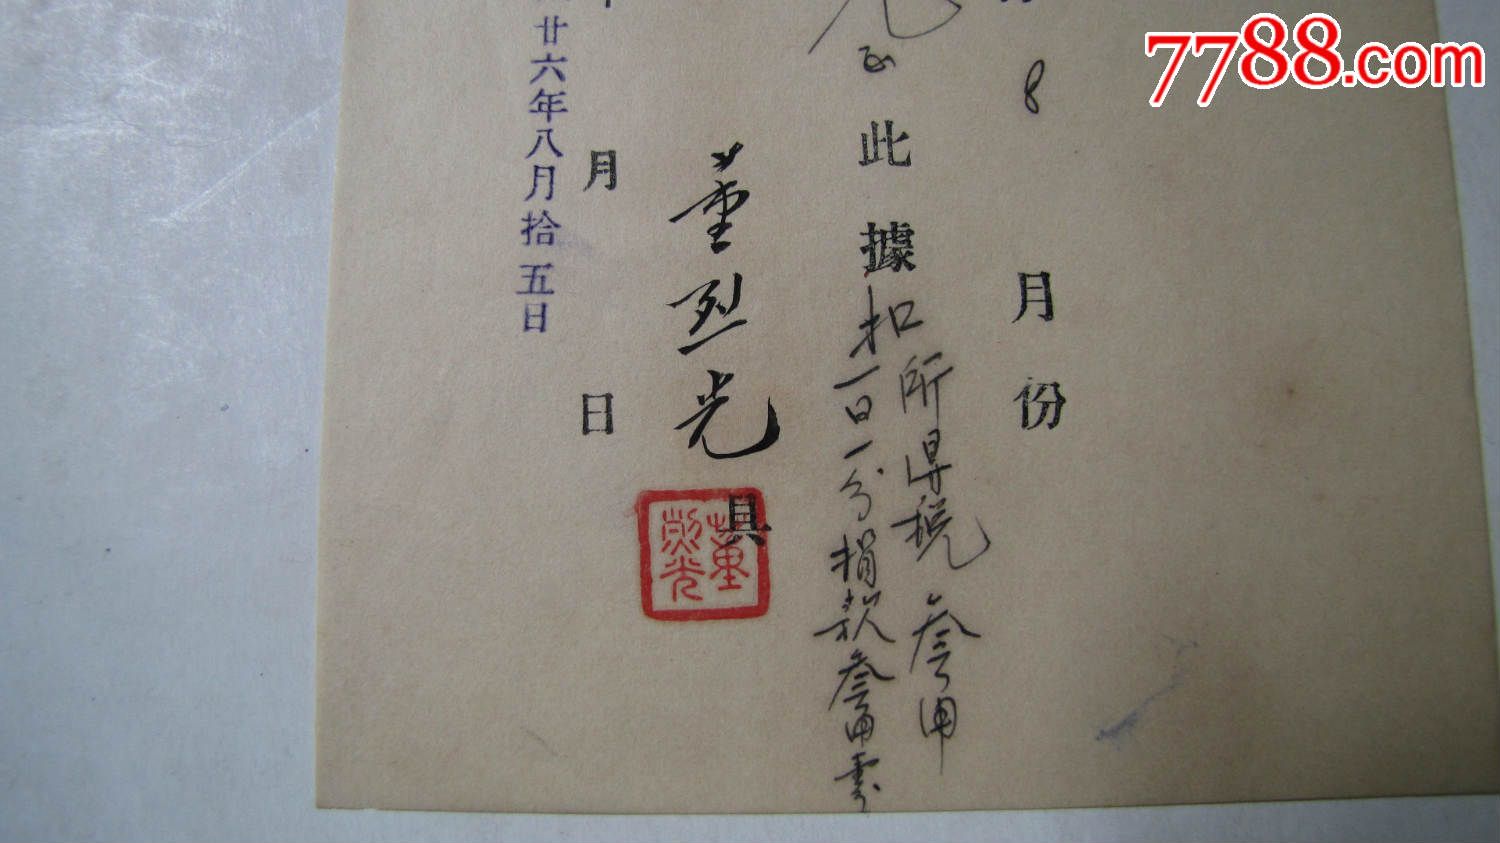 7788.com
8 月份
正此據
扣所得稅叁角
一日一分捐款叁角零
董烈光 具
董烈光
月 日
廿六年八月拾五日